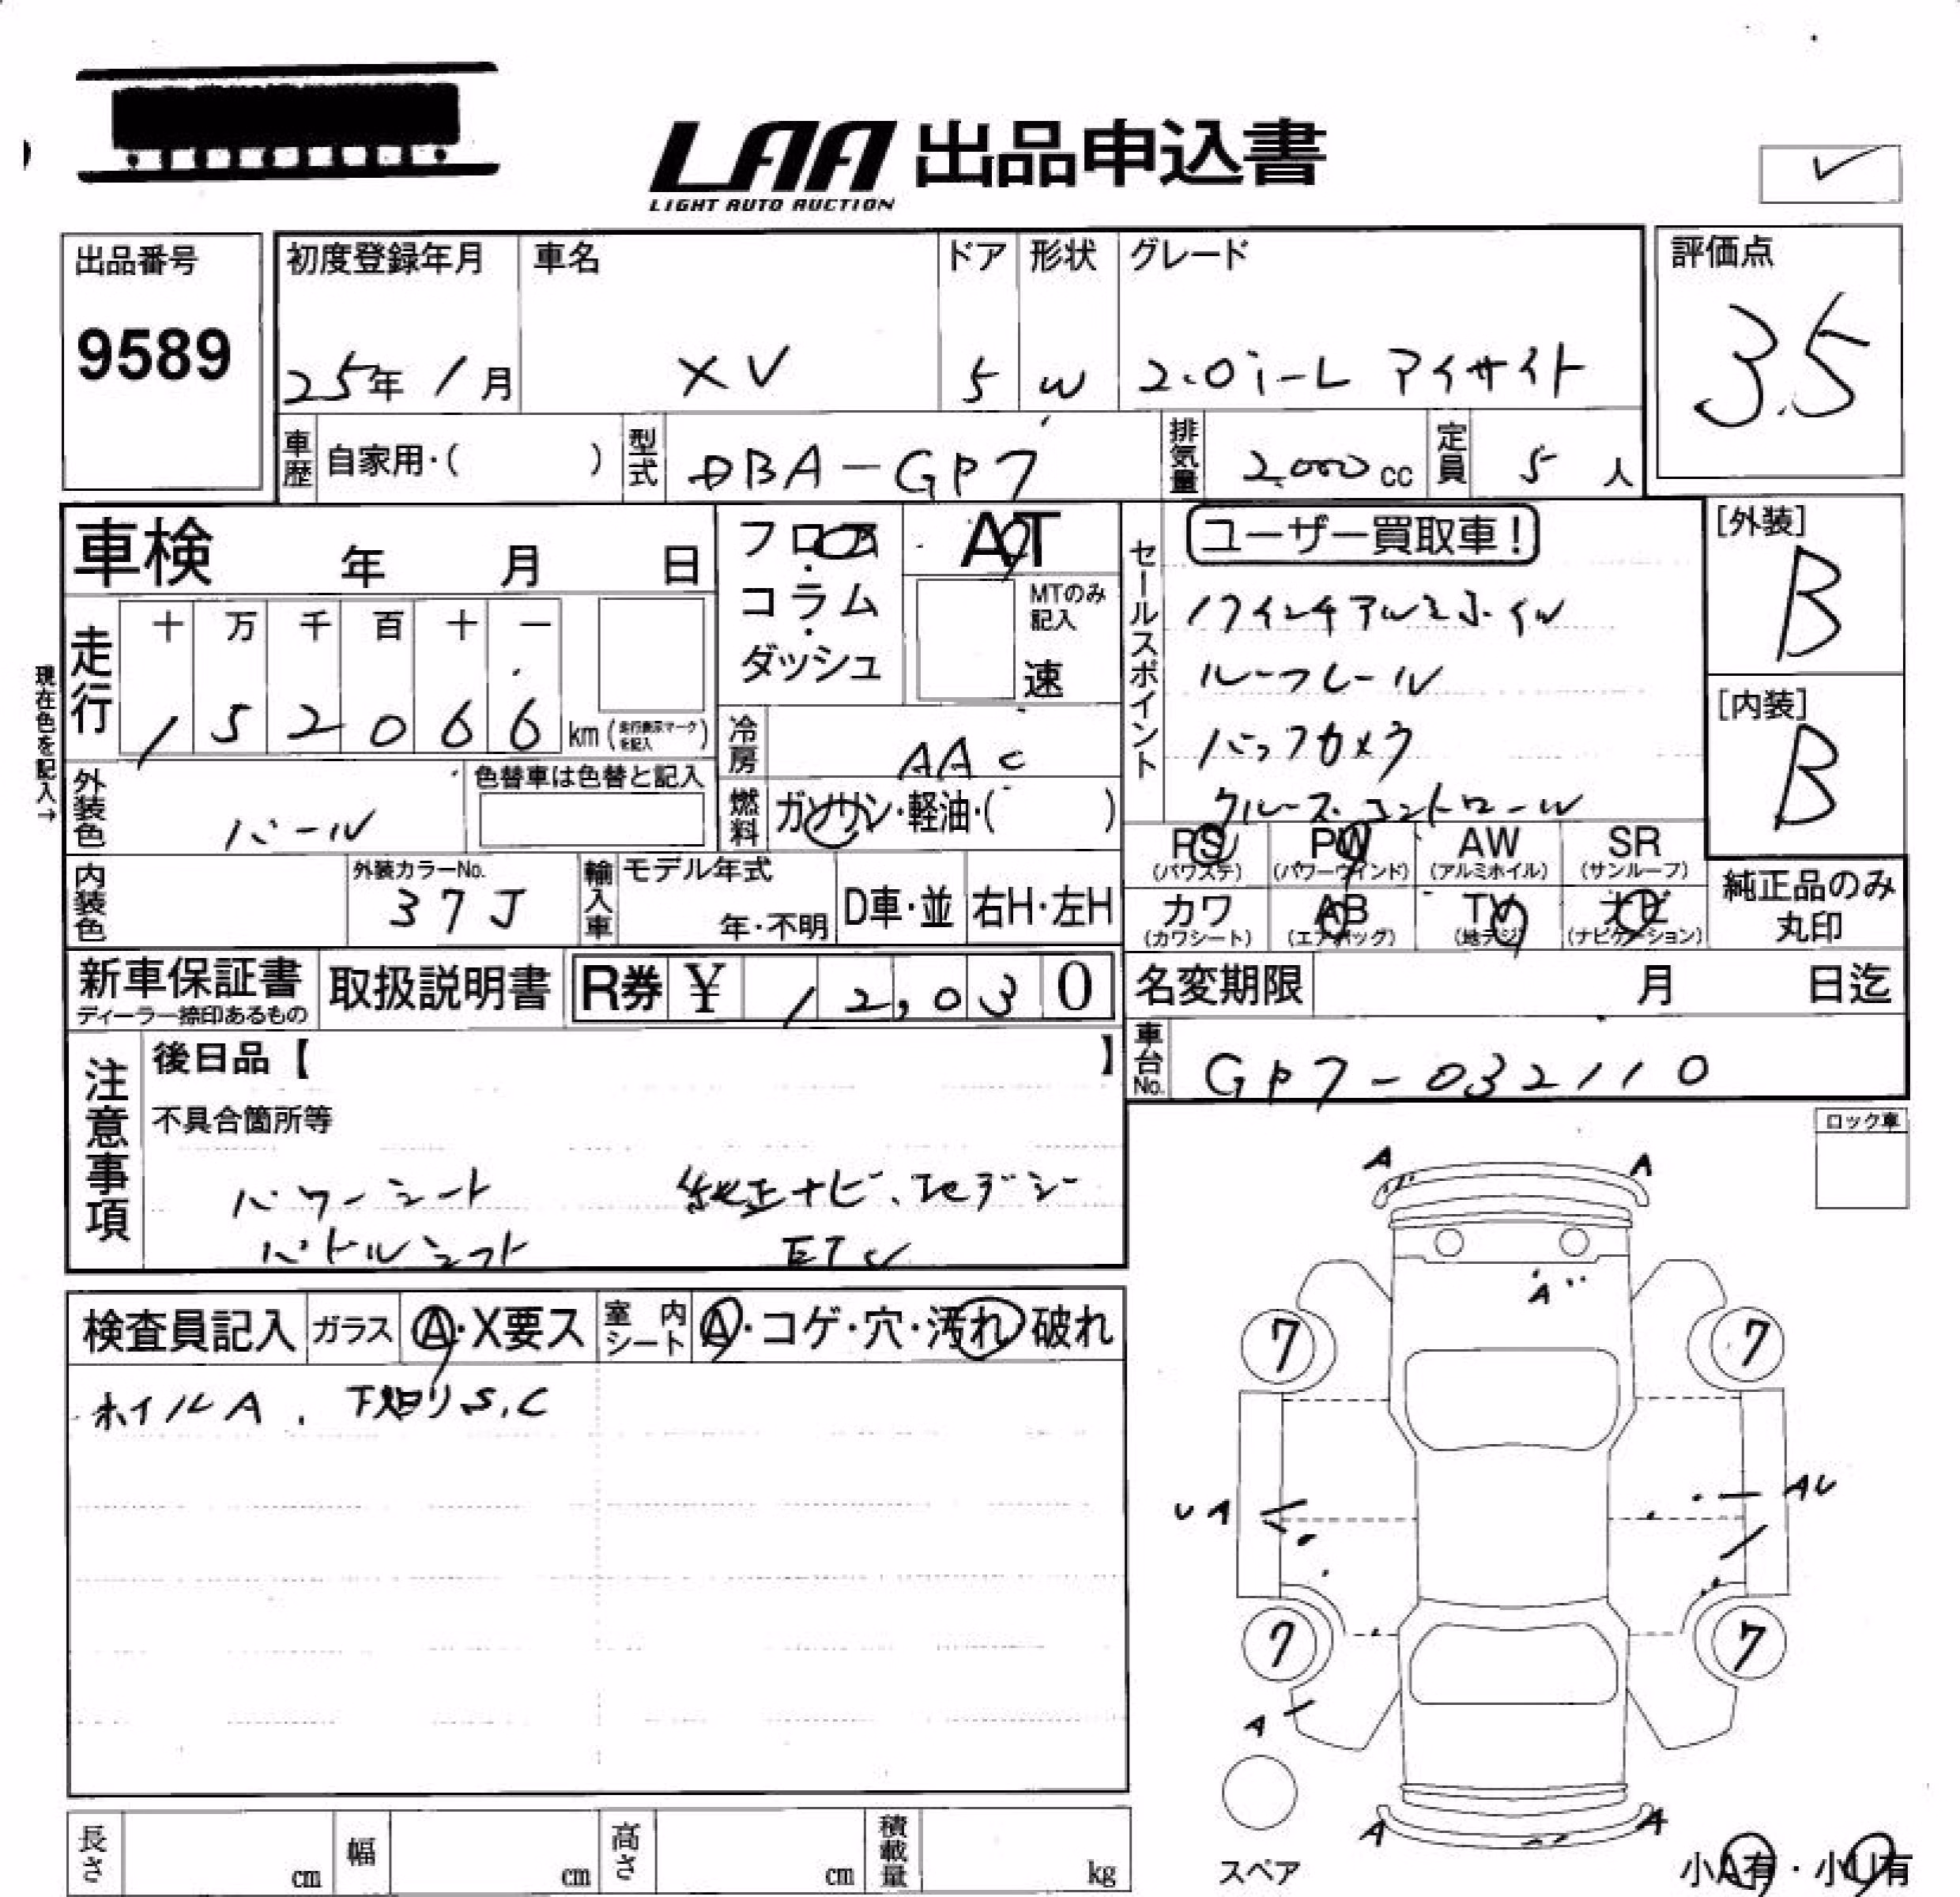 LAA 出品申込書
LIGHT AUTO AUCTION
出品番号
9589
初度登録年月
25年 1月
車名
XV
ドア
5
形状
W
グレード
2.0i-L アイサイト
評価点
3.5
車歴 自家用・( )
型式 DBA-GP7
排気量 2,000 cc
定員 5 人
車検 年 月 日
フロア・コラム・ダッシュ
AT
MTのみ記入
速
走行
十 万 千 百 十 一
1 5 2 0 6 6 km (走行表示マークを記入)
現在色を記入→
冷房 AAC
外装色 パール
色替車は色替と記入
燃料 ガソリン・軽油・( )
内装色
外装カラーNo.
37J
輸入車
モデル年式
年・不明
D車・並
右H・左H
セールスポイント
ユーザー買取車!
17インチアルミホイル
ルーフレール
バックカメラ
クルーズコントロール
[外装]
B
[内装]
B
PS (パワステ)
PW (パワーウインド)
AW (アルミホイル)
SR (サンルーフ)
カワ (カワシート)
AB (エアバッグ)
TV (地デジ)
ナビ (ナビゲーション)
純正品のみ丸印
新車保証書
ディーラー捺印あるもの
取扱説明書
R券 ¥ 12,030
名変期限 月 日迄
車台No. GP7-032110
注意事項
後日品【 】
不具合箇所等
パワーシート 純正ナビ、地デジ
パドルシフト ETC
ロック車
検査員記入
ガラス A・X要ス
室内シート A・コゲ・穴・汚れ・破れ
ホイルA、下廻りS、C
A A
A
7 7
UA AU
7 7
A
A A
スペア
小A有・小U有
長さ cm
幅 cm
高さ cm
積載量 kg